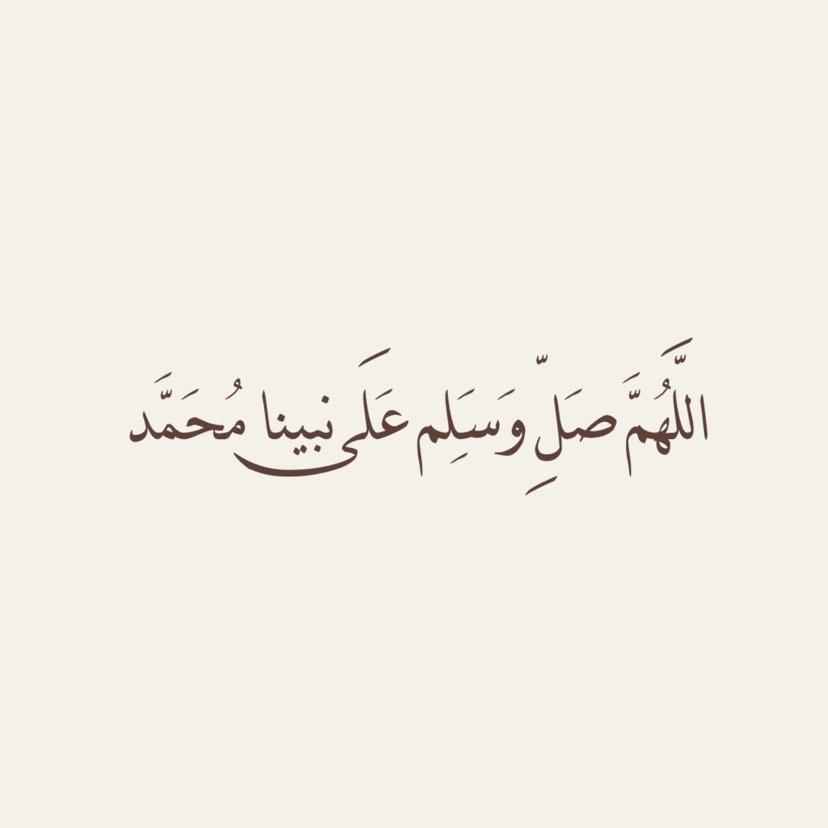 اللَّهُمَّ صَلِّ وَسَلِم عَلَى نبينا مُحَمَّد